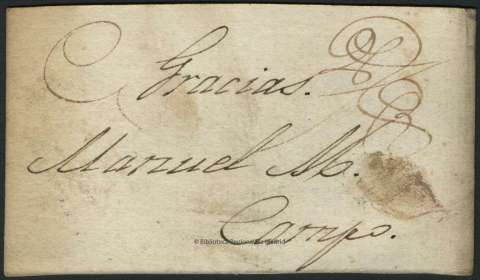 Gracias.
Manuel M.
Campo.
© Biblioteca Regional de Madrid